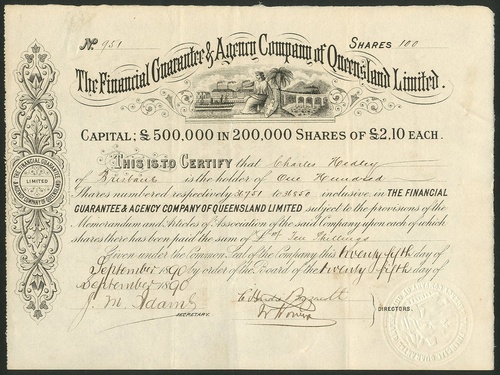 No. 951 SHARES 100
The Financial Guarantee & Agency Company of Queensland Limited.
CAPITAL; £500,000 IN 200,000 SHARES OF £2.10 EACH.
THIS IS TO CERTIFY that Charles Hedley
of Brisbane is the holder of One Hundred
Shares numbered respectively to inclusive, in THE FINANCIAL
GUARANTEE & AGENCY COMPANY OF QUEENSLAND LIMITED. subject to the provisions of the
Memorandum and Articles of Association of the said Company upon each of which
shares there has been paid the sum of Ten Shillings
Given under the Common Seal of the Company this twenty fifth day of
September 1890 by order of the Board of the twenty fifth day of
September 1890
J. M. Adams
SECRETARY.
DIRECTORS.
THE FINANCIAL GUARANTEE
LIMITED
& AGENCY COMPANY OF QUEENSLAND